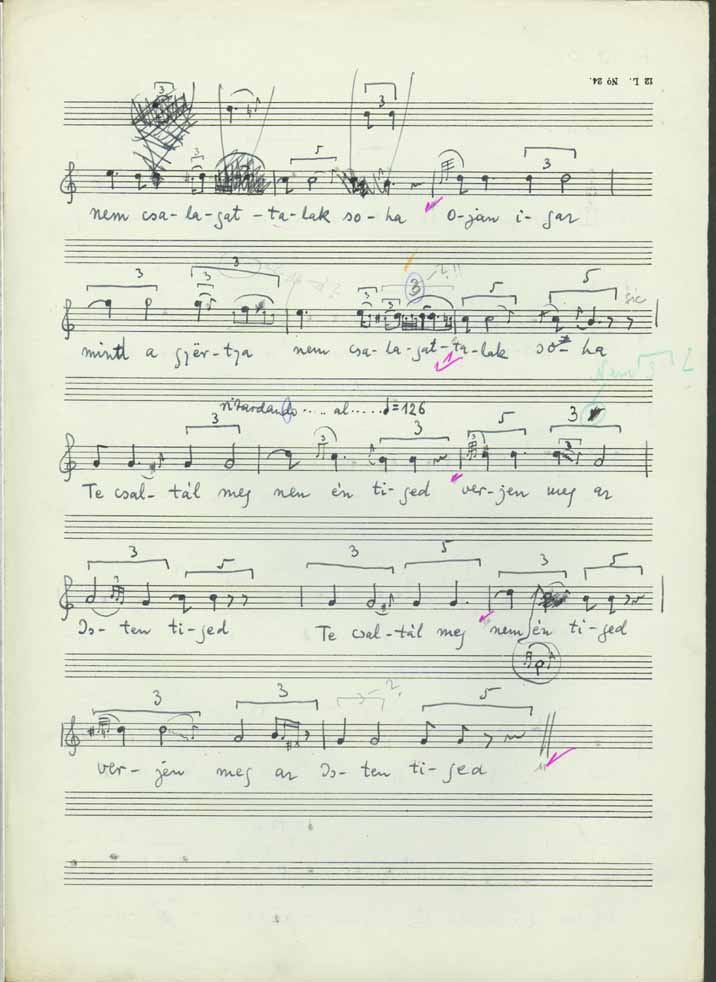 12 L. No 24.
3 3
3 5 3
nem csa-la-gat-ta-lak so-ha O-jan i-gaz
3 3 3 3 3 5 5 sic
mintt a gyër-tya nem csa-la-gat-ta-lak so-ha
ritardando ..... al ..... = 126
3 3 5 3 3
Te csal-tál meg nem én ti-ged ver-jen meg az
3 3 5 3 5 3 5
Is-ten ti-ged Te csal-tál meg nem én ti-ged
3 3 3-2 5
ver-jen meg az Is-ten ti-ged